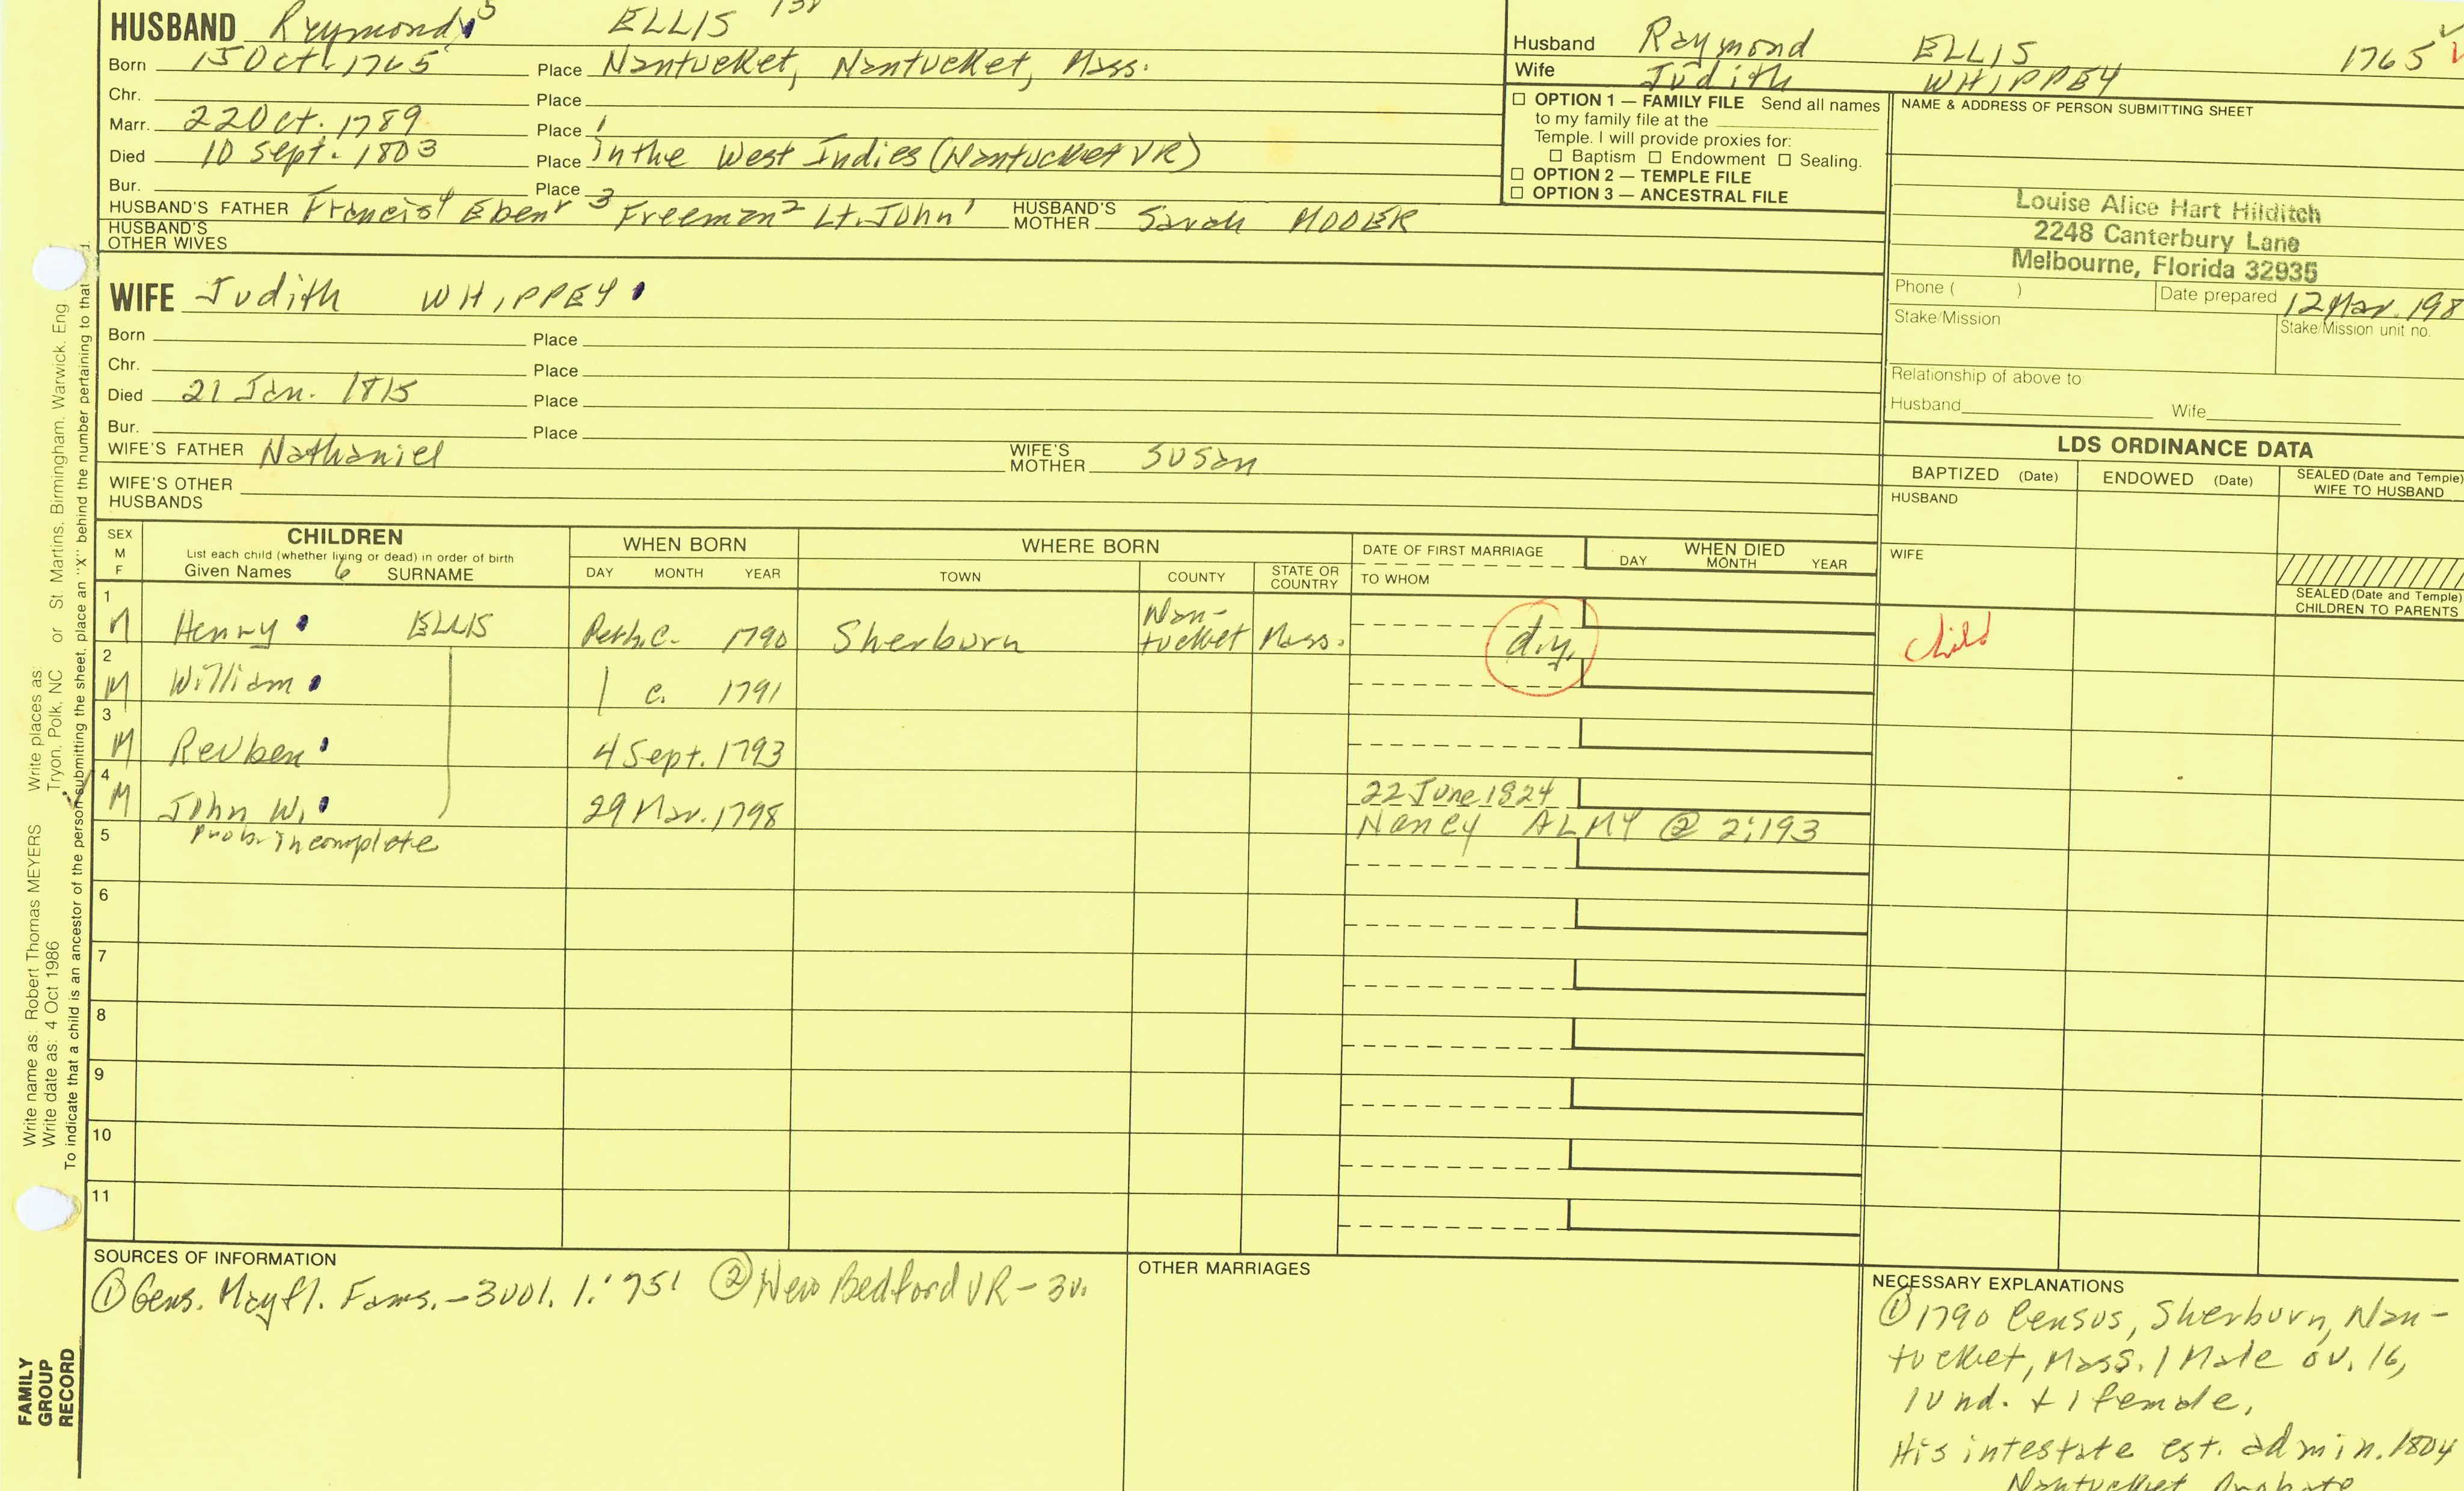 HUSBAND Raymond 5 ELLIS
Born 15 Oct. 1765 Place Nantucket, Nantucket, Mass.
Chr. Place
Marr. 22 Oct. 1789 Place
Died 10 Sept. 1803 Place in the West Indies (Nantucket VR)
Bur. Place
HUSBAND'S FATHER Francis 4 Eben r 3 Freeman 2 Lt. John 1 HUSBAND'S MOTHER Sarah MODER
HUSBAND'S OTHER WIVES
Husband Raymond ELLIS 1765
Wife Judith WHIPPEY
☐ OPTION 1 — FAMILY FILE Send all names
to my family file at the
Temple. I will provide proxies for:
☐ Baptism ☐ Endowment ☐ Sealing.
☐ OPTION 2 — TEMPLE FILE
☐ OPTION 3 — ANCESTRAL FILE
NAME & ADDRESS OF PERSON SUBMITTING SHEET
Louise Alice Hart Hilditch
2248 Canterbury Lane
Melbourne, Florida 32935
Phone ( ) Date prepared 12 Mar. 198
Stake/Mission Stake/Mission unit no.
Relationship of above to
Husband Wife
WIFE Judith WHIPPEY
Born Place
Chr. Place
Died 21 Jan. 1815 Place
Bur. Place
WIFE'S FATHER Nathaniel WIFE'S MOTHER Susan
WIFE'S OTHER
HUSBANDS
LDS ORDINANCE DATA
BAPTIZED (Date) ENDOWED (Date) SEALED (Date and Temple)
WIFE TO HUSBAND
HUSBAND
WIFE
SEALED (Date and Temple)
CHILDREN TO PARENTS
SEX M F CHILDREN WHEN BORN WHERE BORN DATE OF FIRST MARRIAGE WHEN DIED
List each child (whether living or dead) in order of birth
Given Names 6 SURNAME DAY MONTH YEAR TOWN COUNTY STATE OR COUNTRY TO WHOM DAY MONTH YEAR
1 M Henry ELLIS c. 1790 Sherburn Nan-
tucket Mass. d.y. child
2 M William c. 1791
3 M Reuben 4 Sept. 1793
4 M John W. 29 Mar. 1798 22 June 1824
Nancy ALMY @ 2:193
5 Prob. incomplete
6
7
8
9
10
11
SOURCES OF INFORMATION
① Gens. Mayfl. Fams. - 3 vol. 1: 751 ② New Bedford VR - 3v.
OTHER MARRIAGES
NECESSARY EXPLANATIONS
① 1790 Census, Sherburn, Nan-
tucket, Mass. 1 Male ov. 16,
1 und. + 1 female.
His intestate est. admin. 1804
Nantucket Probate
Write name as: Robert Thomas MEYERS Write places as:
Write date as: 4 Oct 1986 Tryon, Polk, NC or St. Martins, Birmingham, Warwick, Eng
To indicate that a child is an ancestor of the person submitting the sheet, place an "X" behind the number pertaining to that
FAMILY
GROUP
RECORD